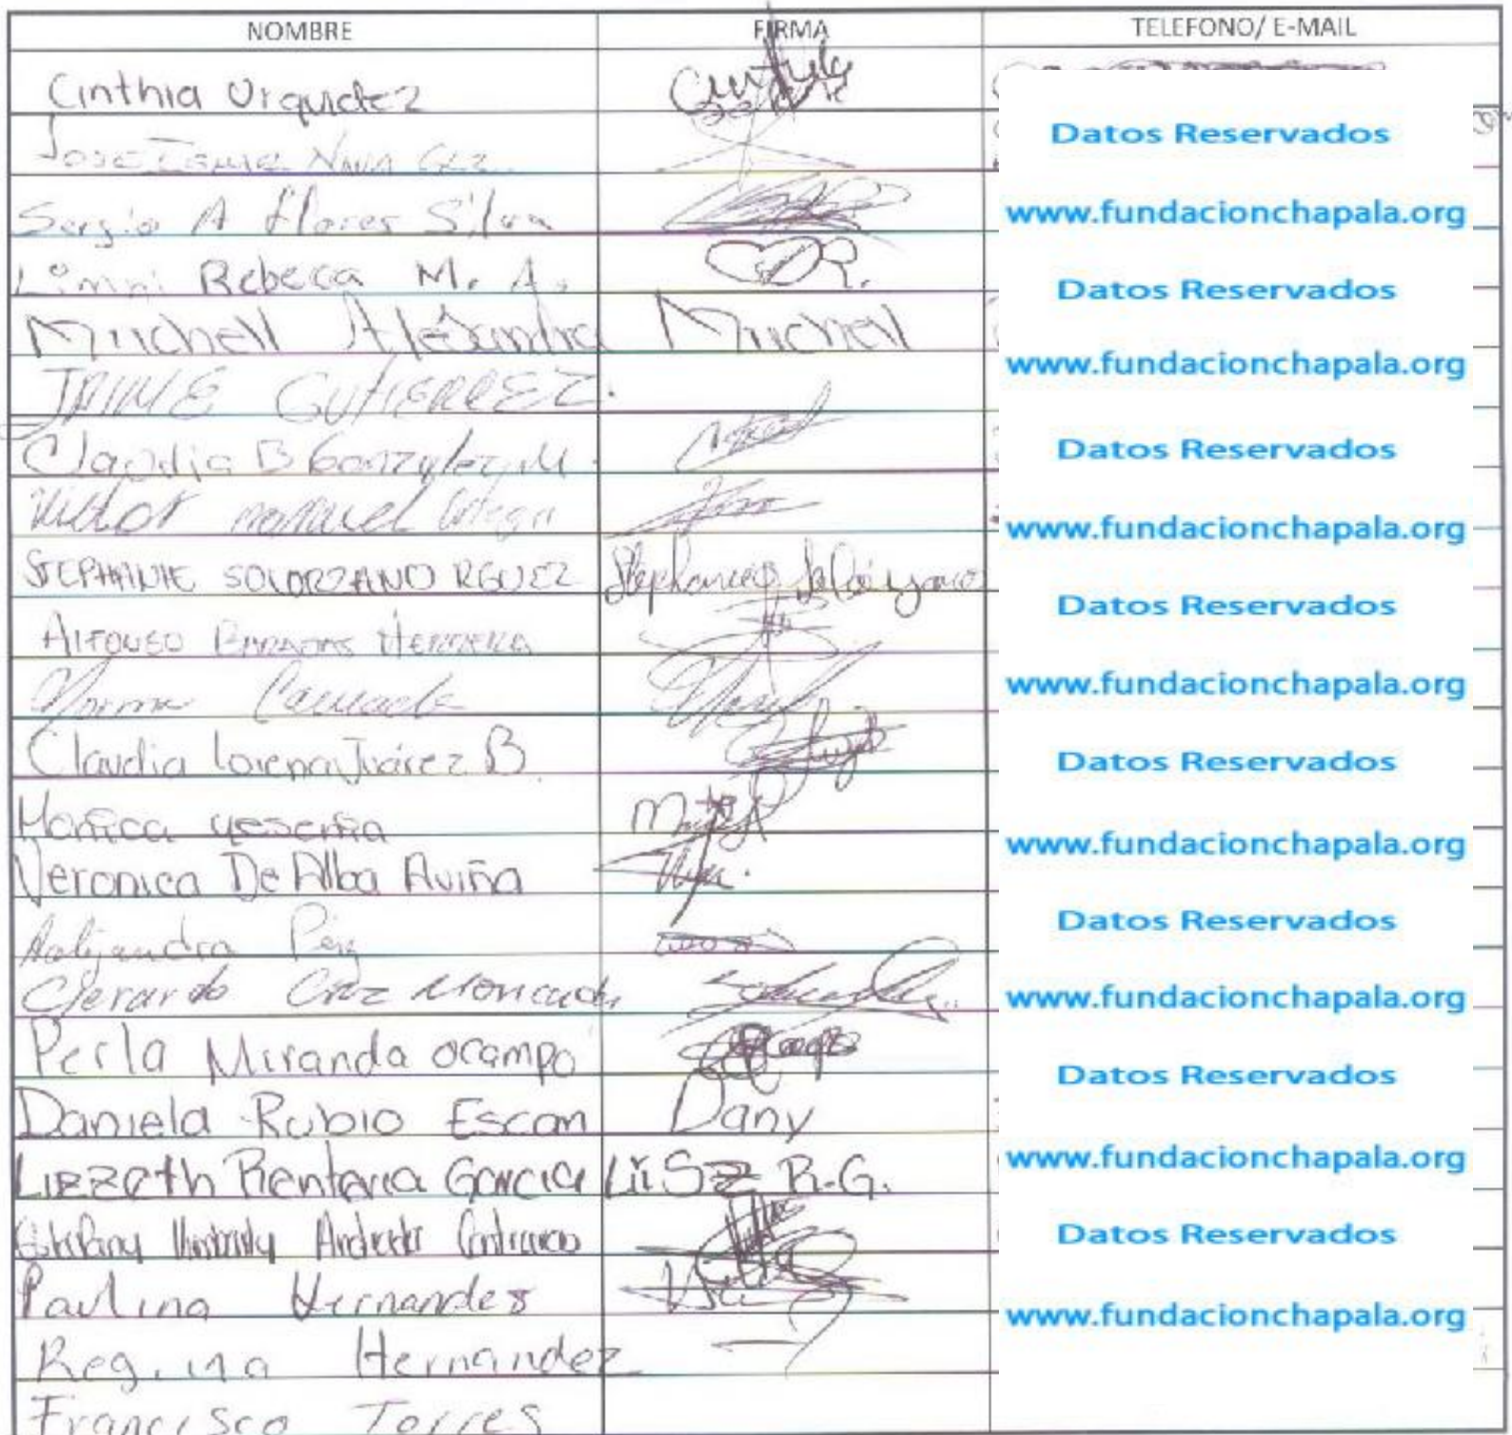 NOMBRE FIRMA TELEFONO/ E-MAIL
Cinthia Urquidez Cinthia
Datos Reservados
Jose Nava Glz
Sergio A Flores Silva www.fundacionchapala.org
Rebeca M. A. R. Datos Reservados
Miichell Alexandra Miichell
www.fundacionchapala.org
JAIME GUTIERREZ.
Claudia B Gonzalez M. Datos Reservados
manuel
www.fundacionchapala.org
STEPHANIE SOLORZANO RGUEZ Stephanie Solórzano
Datos Reservados
Alfonso Barajas Herrera
Norma Camacho www.fundacionchapala.org
Claudia Lorena Juárez B. Datos Reservados
Monica yesenia www.fundacionchapala.org
Veronica De Alba Aviña
Datos Reservados
Alejandra
Gerardo Cruz Moncada www.fundacionchapala.org
Perla Miranda ocampo Datos Reservados
Daniela Rubio Escam Dany
Lizzeth Renteria Garcia LiSz R.G. www.fundacionchapala.org
Datos Reservados
Paulina Hernandez www.fundacionchapala.org
Regina Hernandez
Francisco Torres